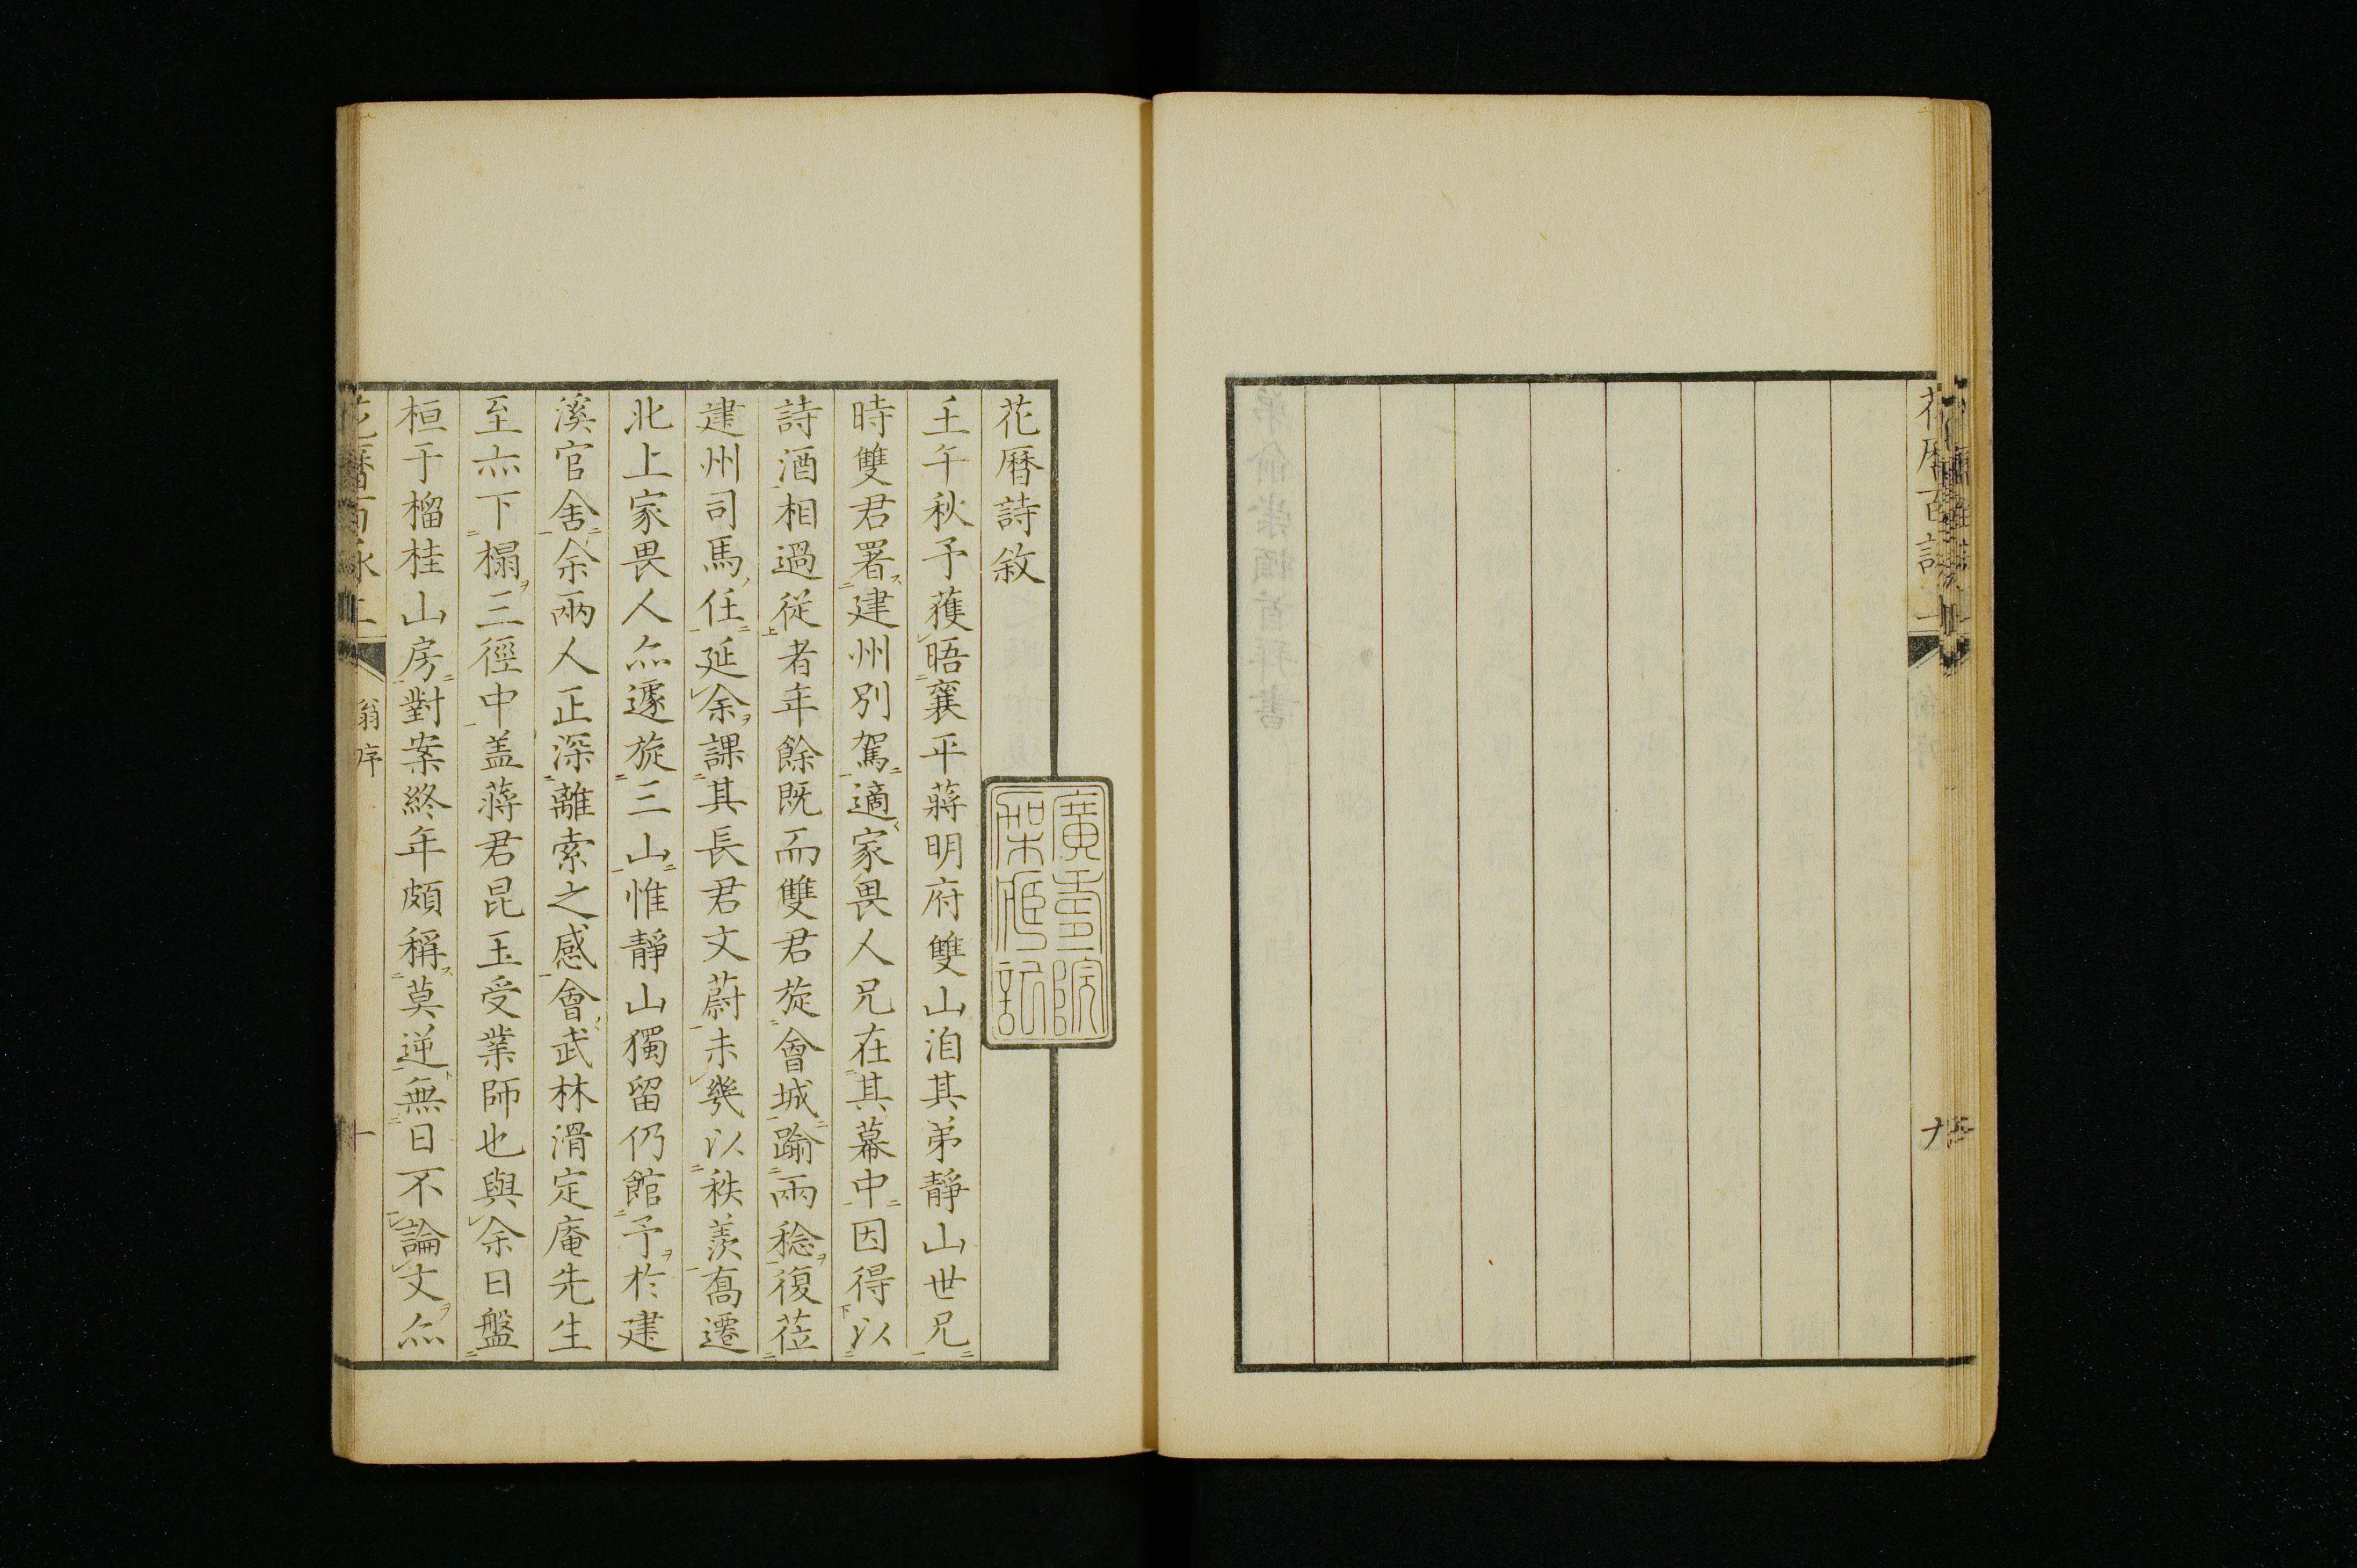 花曆百詠
九
花曆詩敘
壬午秋予蒦晤襄平蔣明府雙山洎其弟靜山世兄
時雙君署建州別駕適家畏人兄在其幕中因得以
詩酒相過從者年餘既而雙君旋會城踰兩稔復莅
建州司馬任延余課其長君文蔚未幾以秩羨喬遷
北上家畏人亦遽旋三山惟靜山獨留仍館予於建
溪官舍余兩人正深離索之感會武林滑定庵先生
至亦下榻三徑中盖蔣君昆玉受業師也與余日盤
桓于榴桂山房對案終年頗稱莫逆無日不論文亦
花曆百詠
翁序
一